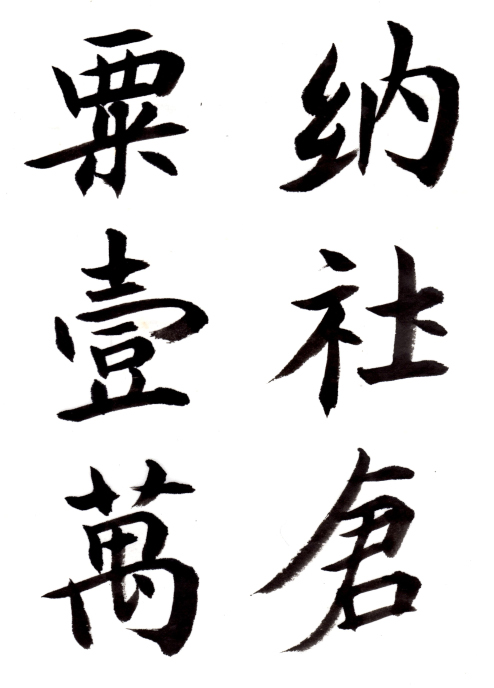 納社倉
粟壹萬